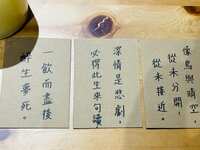 像鳥與晴空
從未分開，
從未接近。
深情是悲劇，
必得此生來句讀
一飲而盡後
醉生夢死。